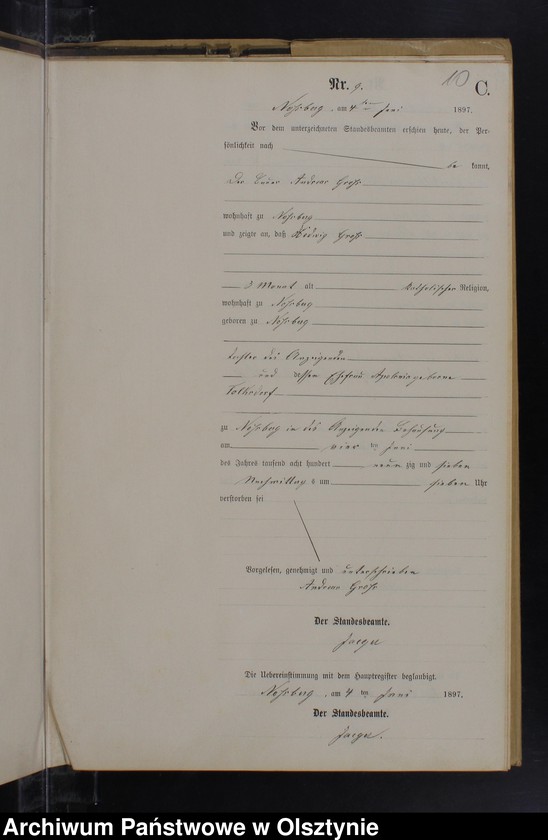 10
Nr. 9. C.
am 4ten Juni 1897.
Vor dem unterzeichneten Standesbeamten erschien heute, der Per-
sönlichkeit nach
be kannt,
Der Andreas
wohnhaft zu
und zeigte an, daß Hedwig
3 Monat alt katholischer Religion,
wohnhaft zu
geboren zu
Tochter des Anzeigenden
und dessen Ehefrau geborene
zu in des Anzeigenden Behausung
am vier ten Juni
des Jahres tausend acht hundert neun zig und sieben
Nachmittag s um sieben Uhr
verstorben sei
Vorgelesen, genehmigt und unterschrieben
Andreas
Der Standesbeamte.
Jaeger
Die Uebereinstimmung mit dem Hauptregister beglaubigt.
am 4 ten Juni 1897.
Der Standesbeamte.
Jaeger.
Archiwum Państwowe w Olsztynie